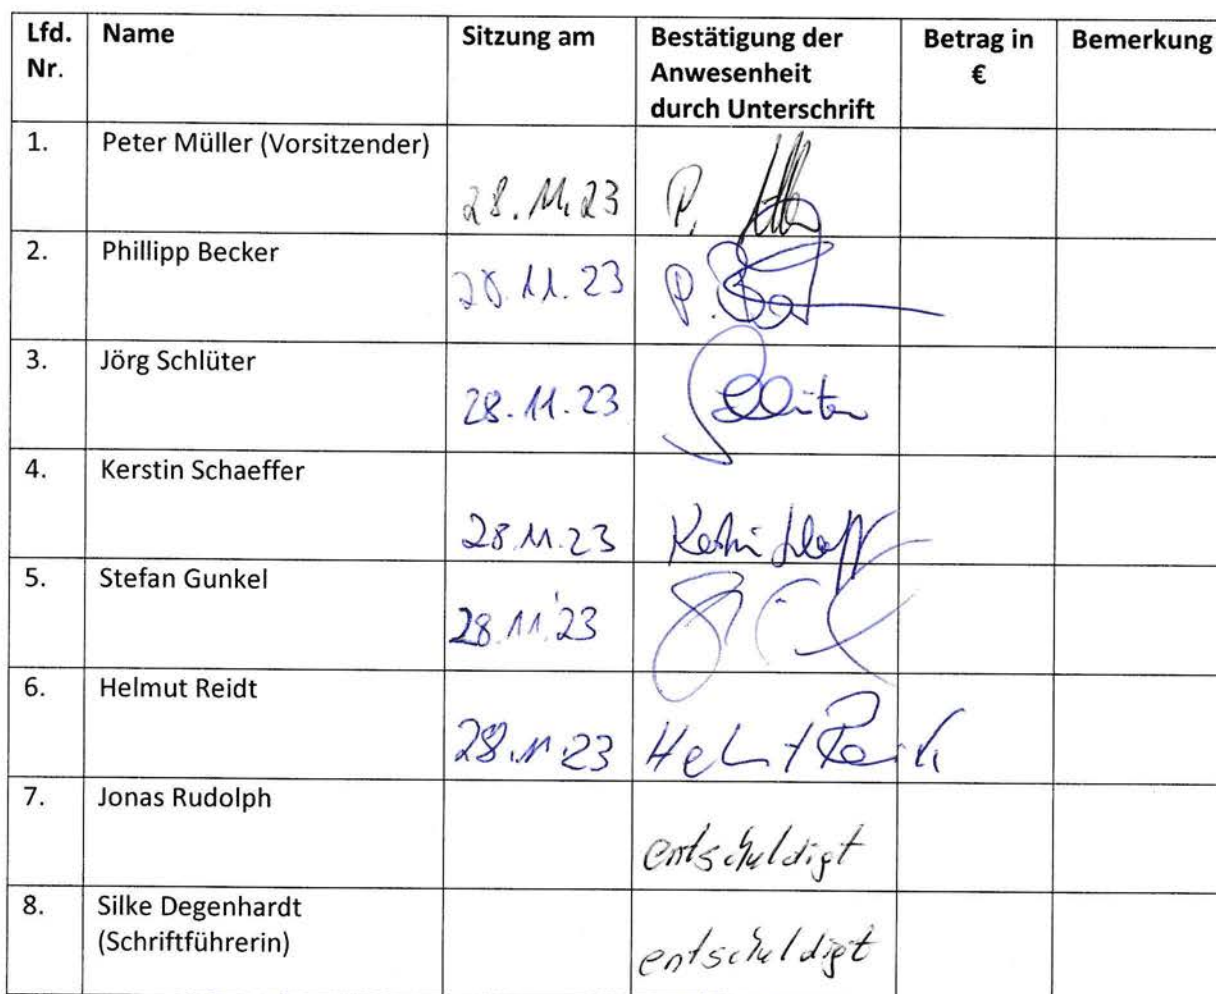 Lfd. Nr.
Name
Sitzung am
Bestätigung der
Anwesenheit
durch Unterschrift
Betrag in
€
Bemerkung
1. Peter Müller (Vorsitzender)
28.11.23 P.
2. Phillipp Becker
28.11.23 P.
3. Jörg Schlüter
28.11.23 Schlüter
4. Kerstin Schaeffer
28.11.23
5. Stefan Gunkel
28.11.23
6. Helmut Reidt
28.11.23 Helmut Reidt
7. Jonas Rudolph
entschuldigt
8. Silke Degenhardt
(Schriftführerin)
entschuldigt